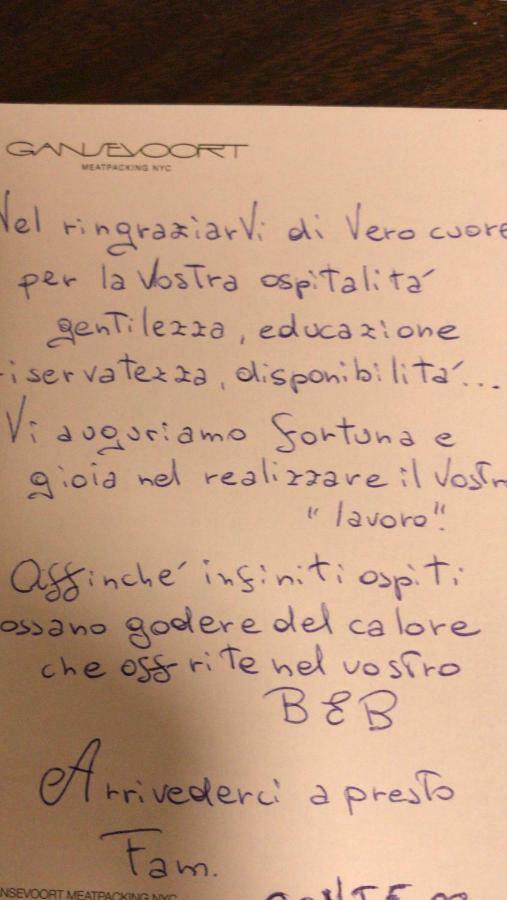 GANSEVOORT
MEATPACKING NYC
Nel ringraziarVi di Vero cuore
per la Vostra ospitalitá
gentilezza, educazione
riservatezza, disponibilitá...
Vi auguriamo fortuna e
gioia nel realizzare il Vostro
"lavoro".
Affinché infiniti ospiti
possano godere del calore
che offrite nel vostro
B & B
Arrivederci a presto
Fam.
NSEVOORT MEATPACKING NYC